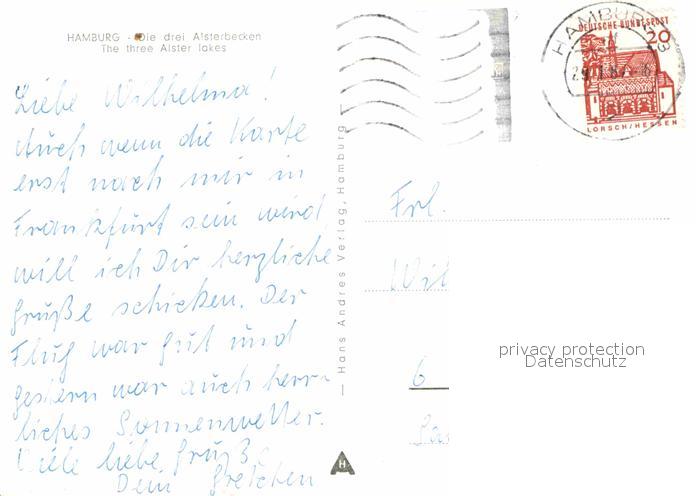 HAMBURG - Die drei Alsterbecken
The three Alster lakes
Liebe Wilhelma!
Auch wenn die Karte
erst nach mir in
Frankfurt sein wird
will ich Dir herzliche
Grüße schicken. Der
Flug war gut und
gestern war auch herr-
liches Sonnenwetter.
Viele liebe Grüße
Dein Gretchen
— Hans Andres Verlag, Hamburg —
H
HAMBURG
DEUTSCHE BUNDESPOST
20
LORSCH/HESSEN
Frl.
Wil
6
privacy protection
Datenschutz